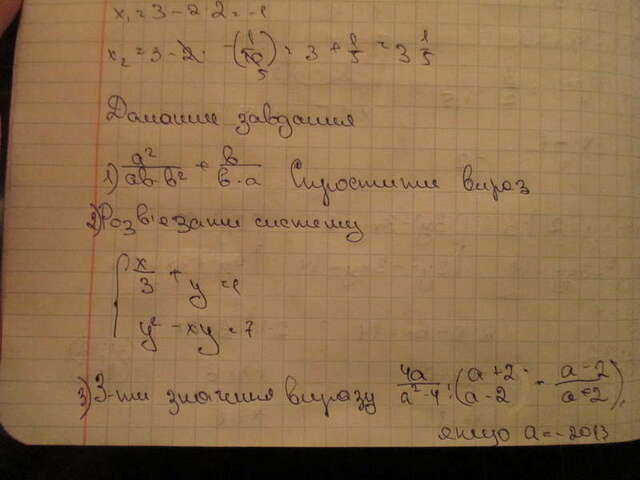 x₁ = 3 - 2·2 = -1
x₂ = 3 - 2· -(1/10 5) = 3 + 1/5 = 3 1/5
Домашнє завдання
1) a²/ab-b² + b/b-a Спростити вираз
2) Розв'язати систему
{ x/3 + y = 1
y² - xy = 7
3) З-ти значення виразу 4a/a²-4 : (a+2/a-2 - a-2/a+2),
якщо a = -2013